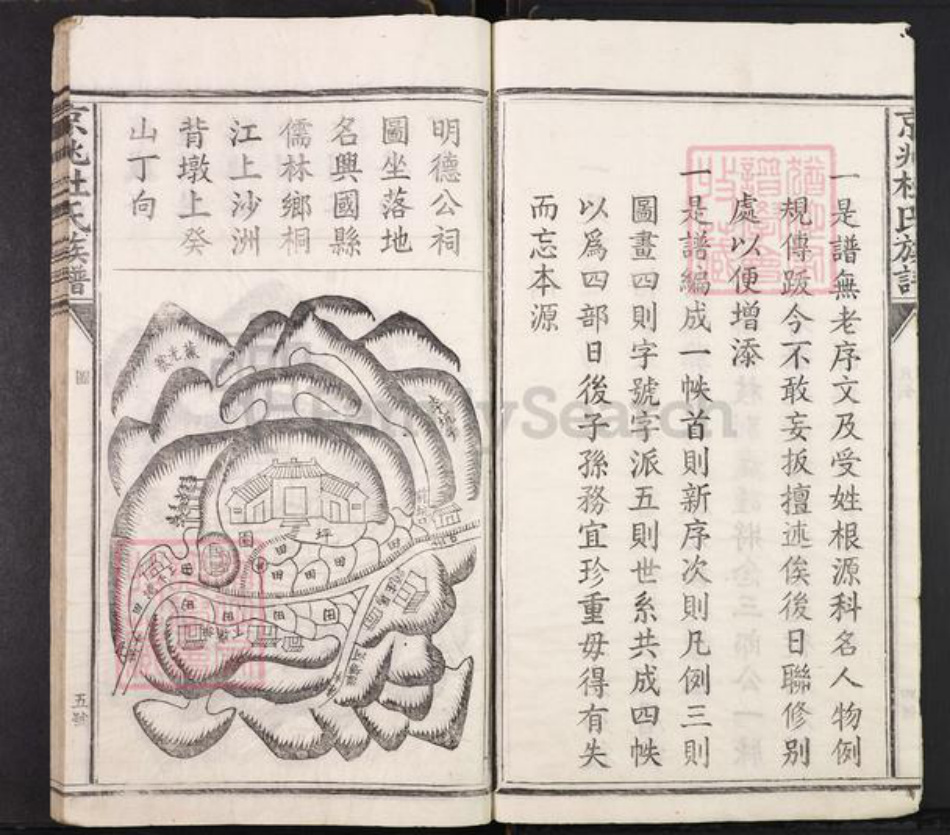 京兆杜氏族譜
一是譜無老序文及受姓根源科名人物例
規傳跋今不敢妄扳擅述俟後日聯修別
處以便增添
一是譜編成一帙首則新序次則凡例三則
圖畫四則字號字派五則世系共成四帙
以爲四部日後子孫務宜珍重毋得有失
而忘本源
明德公祠
圖坐落地
名興國縣
儒林鄉桐
江上沙洲
背墩上癸
山丁向
坪
田
田
田
田
田
田
田
田
田
京兆杜氏族譜
圖
五號
FamilySearch